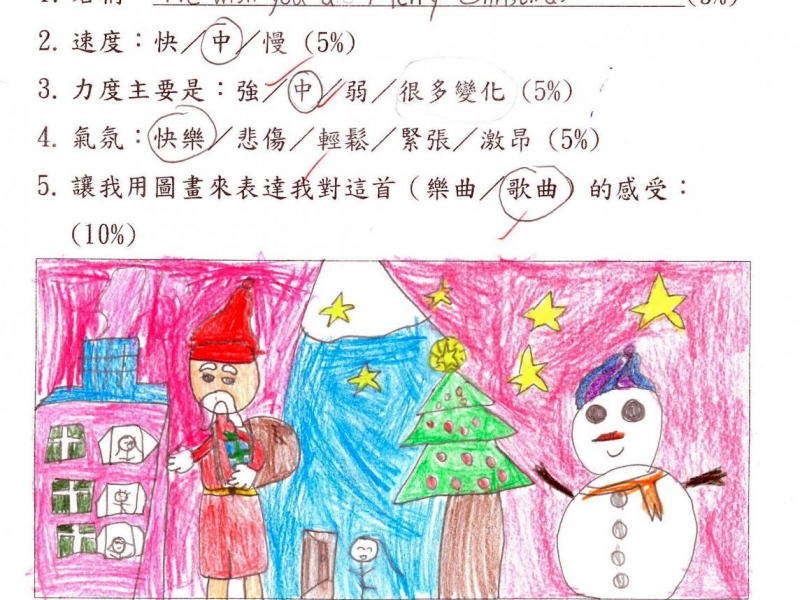 We wish you a Merry Christmas (5%)
2. 速度：快／中／慢 (5%)
3. 力度主要是：強／中／弱／很多變化 (5%)
4. 氣氛：快樂／悲傷／輕鬆／緊張／激昂 (5%)
5. 讓我用圖畫來表達我對這首（樂曲／歌曲）的感受：
(10%)